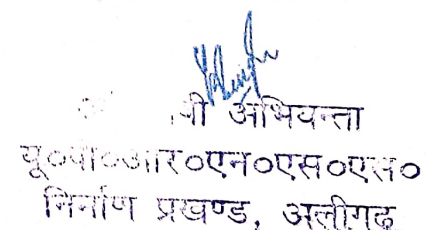 अभियन्ता
यू०पी०आर०एन०एस०एस०
निर्माण प्रखण्ड, अलीगढ़